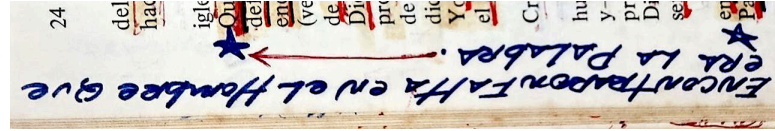 24
del
igle
Qu
del
(ve
de
Di
pro
de
dic
Yo
el
Cr
hu
y-
pr
Di
en
Pa
ENCONTRARON FALTA en eL HombRe Que
eRA LA PALABRA.